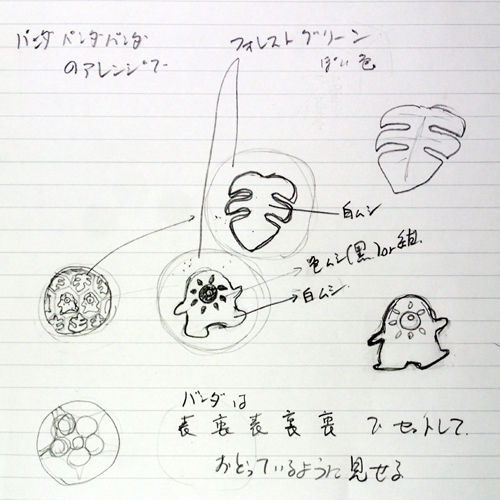 パンダ パンダ パンダ
のアレンジで
フォレストグリーン
ぽい色
白ムシ
色ムシ(黒)or
白ムシ
パンダは
表 裏 表 裏 裏 でセットして
おどっているように見せる